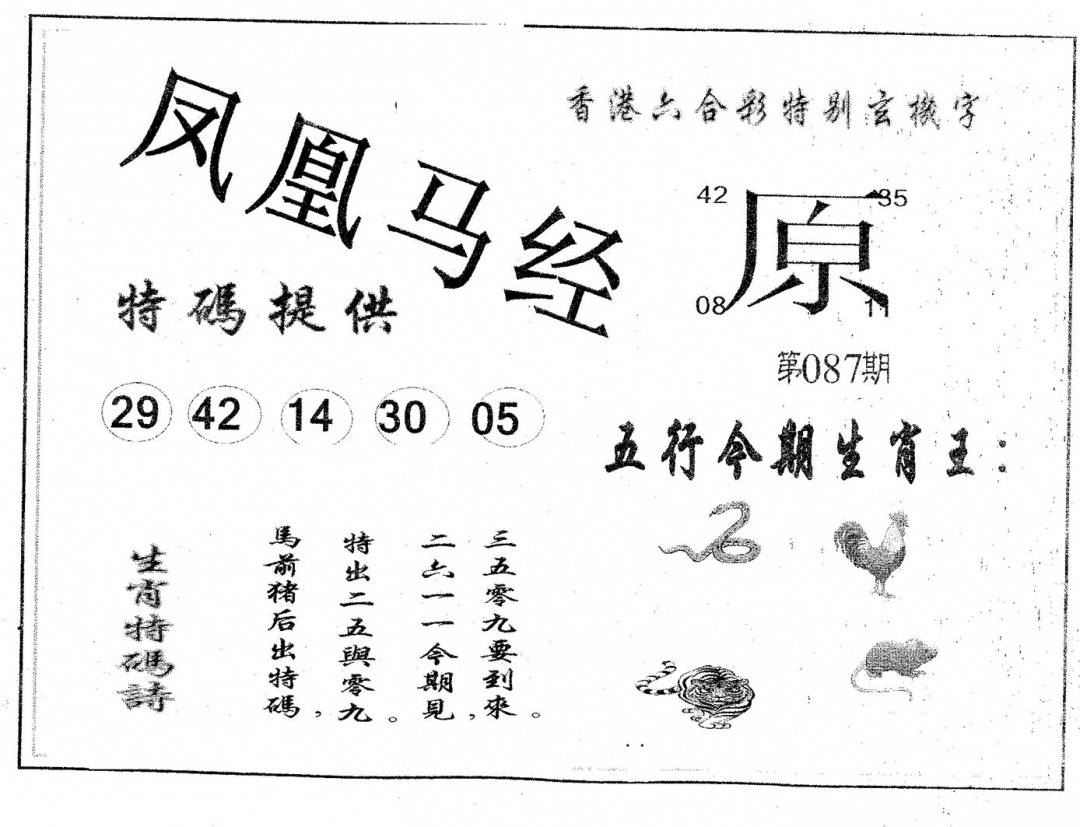 凤凰马经
香港六合彩特别玄機字
42 35
原
08 11
第087期
特碼提供
29 42 14 30 05
五行今期生肖王：
生肖特碼詩
馬前猪后出特碼，
特出二五與零九。
二六一一今期見，
三五零九要到來。